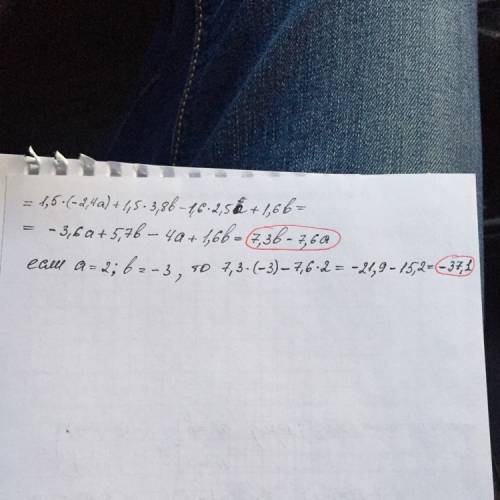 = 1,5·(-2,4a)+1,5·3,8b-1,6·2,5a+1,6b=
= -3,6a+5,7b-4a+1,6b=7,3b-7,6a
если a=2; b=-3, то 7,3·(-3)-7,6·2=-21,9-15,2=-37,1